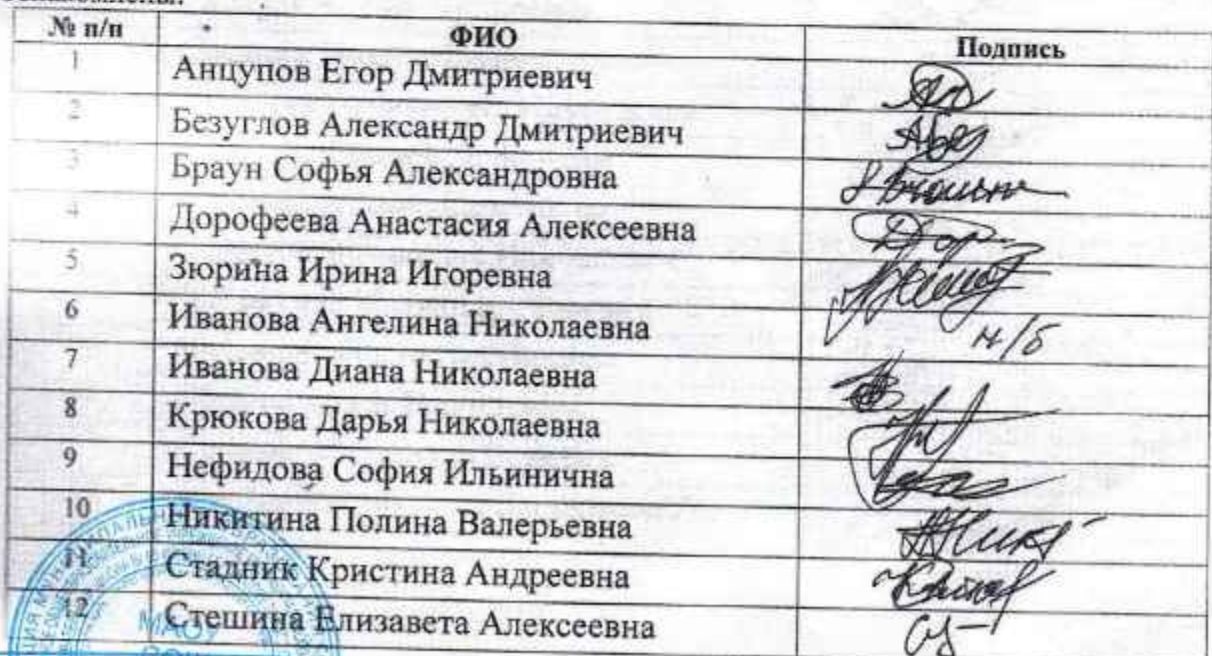 № п/п ФИО Подпись
1 Анцупов Егор Дмитриевич
2 Безуглов Александр Дмитриевич
3 Браун Софья Александровна
4 Дорофеева Анастасия Алексеевна
5 Зюрина Ирина Игоревна
6 Иванова Ангелина Николаевна н/б
7 Иванова Диана Николаевна
8 Крюкова Дарья Николаевна
9 Нефидова София Ильинична
10 Никитина Полина Валерьевна
11 Стадник Кристина Андреевна
12 Стешина Елизавета Алексеевна
МАОУ